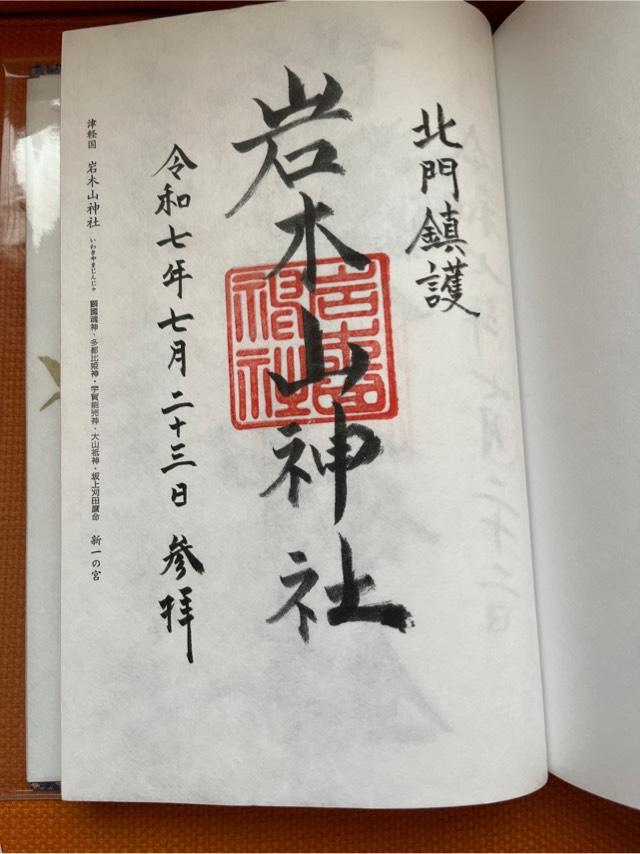 北門鎮護
岩木山神社
令和七年七月二十三日 参拝
津軽国 岩木山神社 いわきやまじんじゃ 顕國魂神・多都比姫神・宇賀能売神・大山祇神・坂上刈田麿命 新一の宮